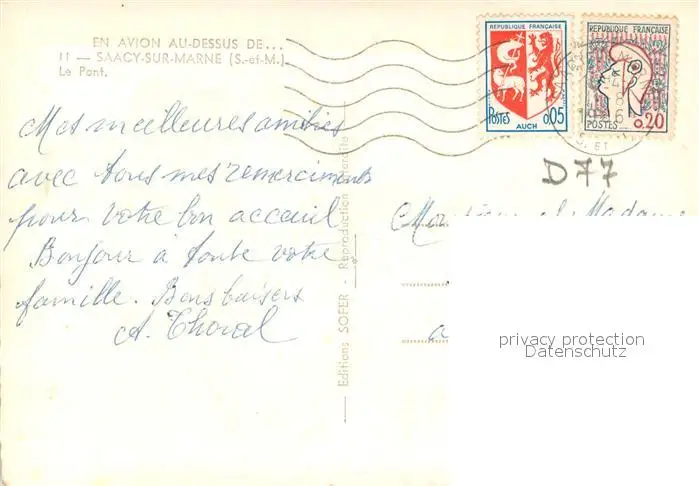 EN AVION AU-DESSUS DE...
11 — SAACY-SUR-MARNE (S.-et-M.)
Le Pont.
Mes meilleures amitiés
avec tous mes remerciments
pour votre bon accueil
Bonjour à toute votre
famille. Bons baisers
A. Thoral
Editions SOFER - Reproduction interdite
REPUBLIQUE FRANÇAISE
POSTES 0,05
AUCH
REPUBLIQUE FRANÇAISE
POSTES 0,20
D77
Monsieur et Madame
a
privacy protection
Datenschutz